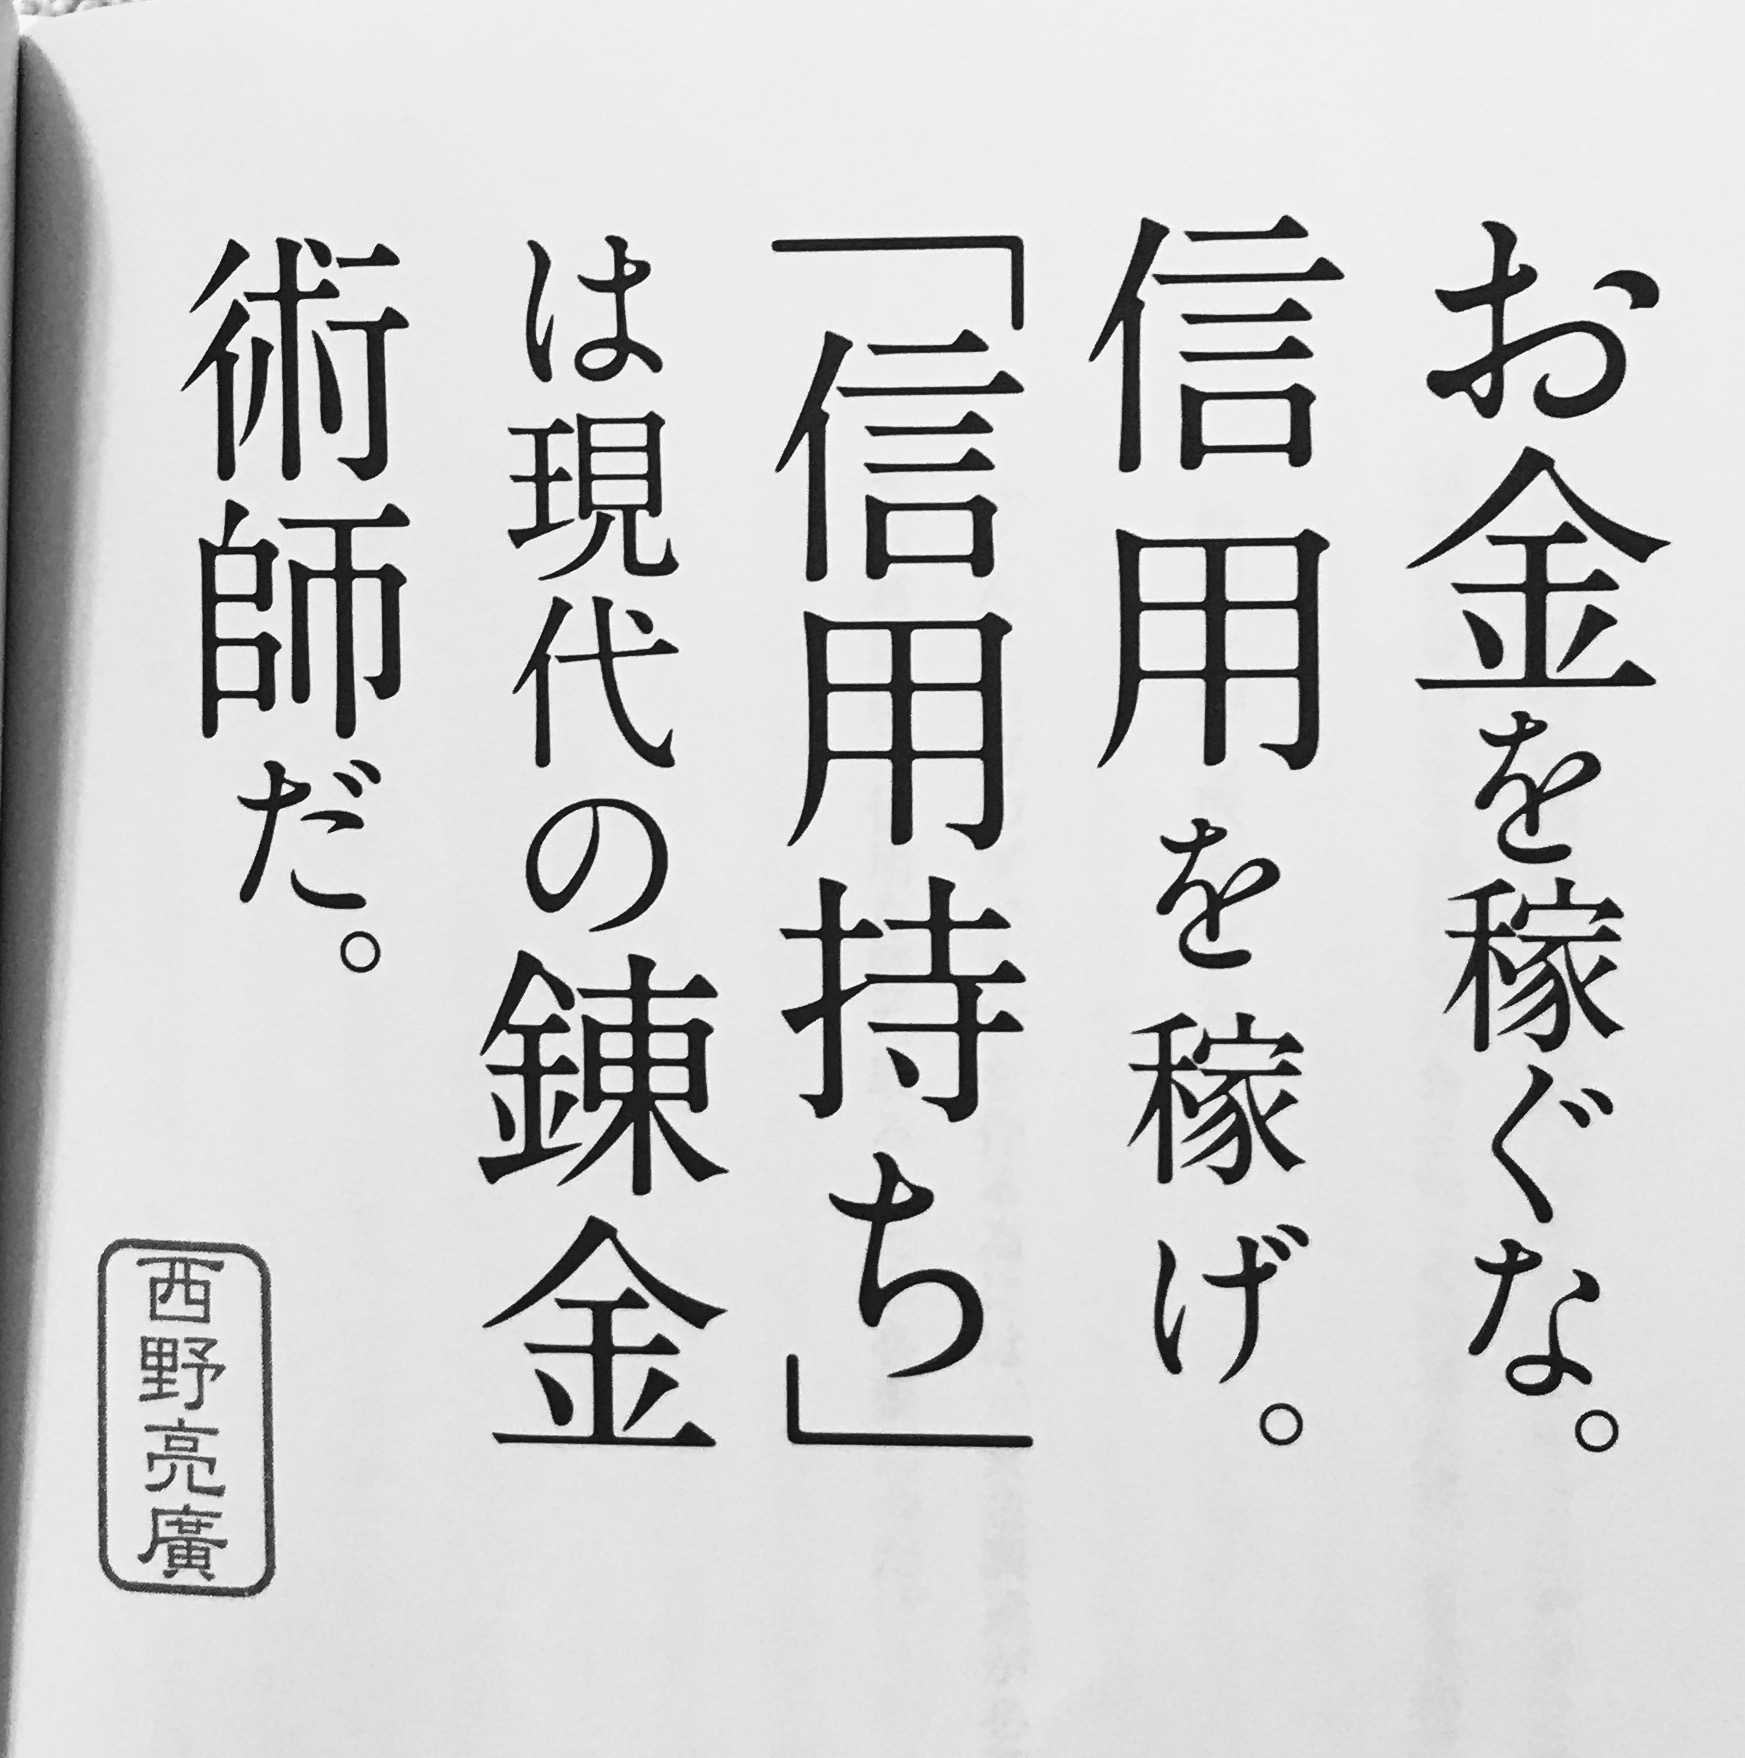 お金を稼ぐな。
信用を稼げ。
「信用持ち」
は現代の錬金
術師だ。
西野亮廣